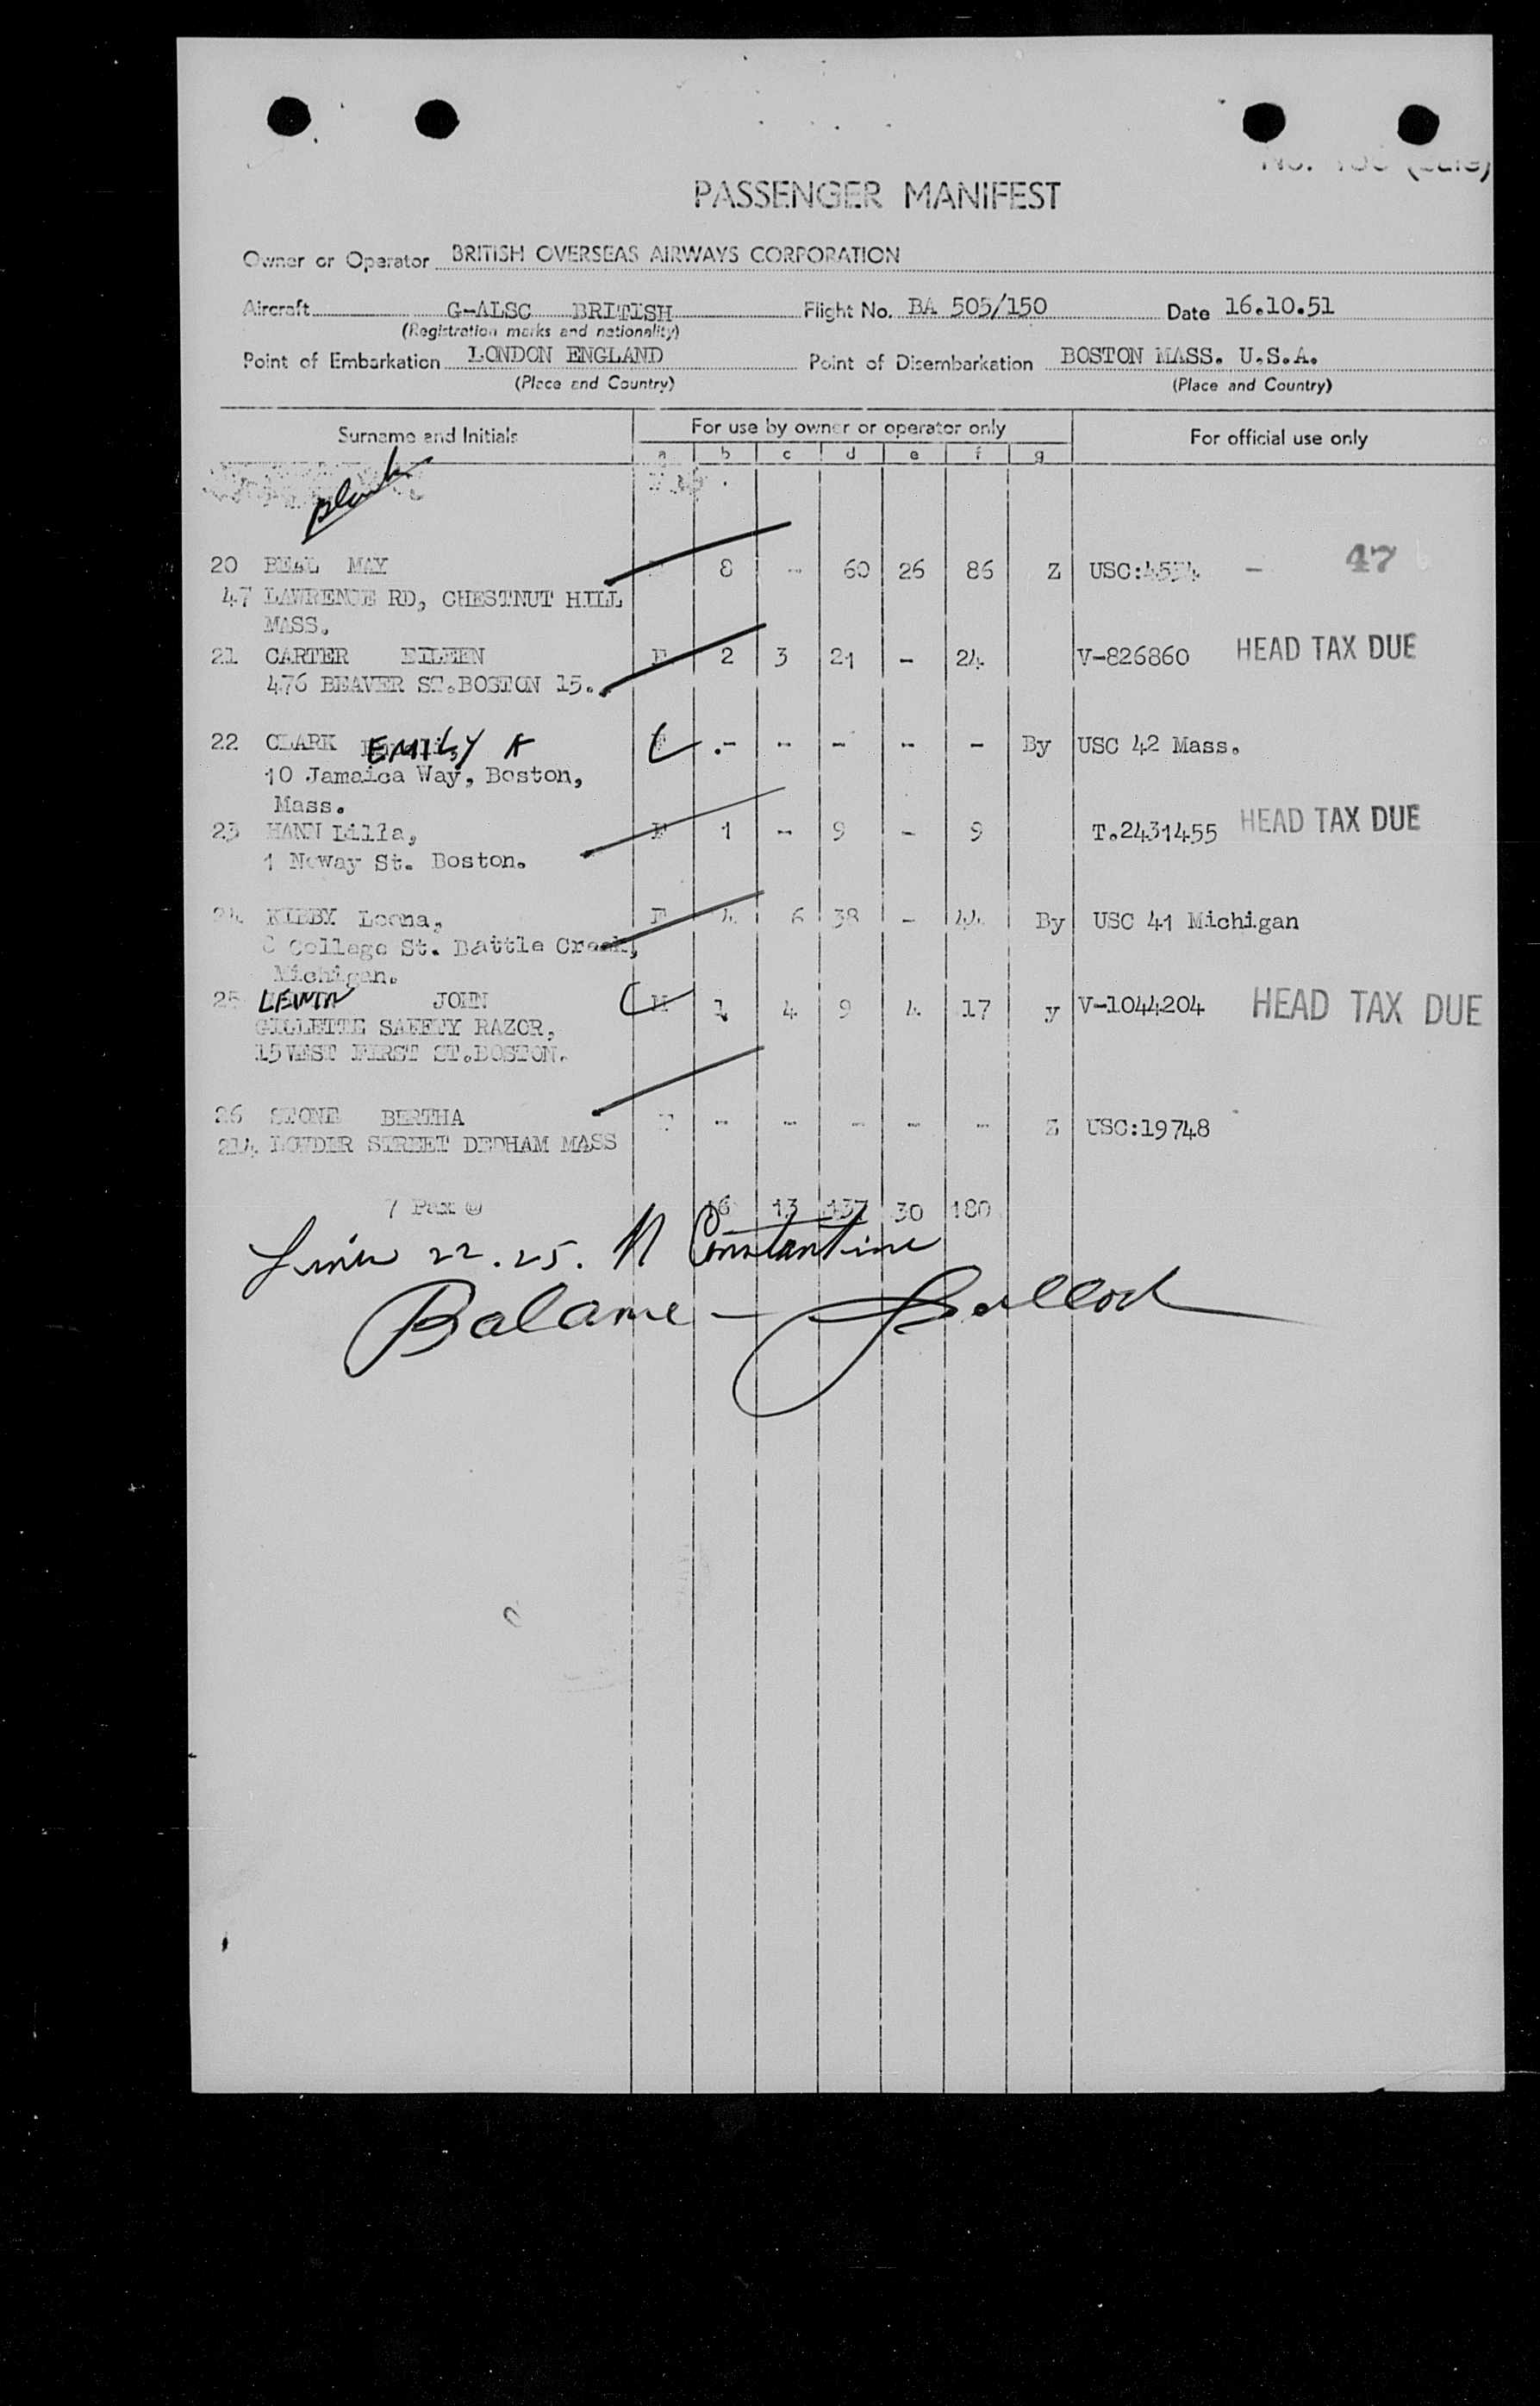 PASSENGER MANIFEST
Owner or Operator BRITISH OVERSEAS AIRWAYS CORPORATION
Aircraft G-ALSC BRITISH Flight No. BA 505/150 Date 16.10.51
(Registration marks and nationality)
Point of Embarkation LONDON ENGLAND Point of Disembarkation BOSTON MASS. U.S.A.
(Place and Country) (Place and Country)
Surname and Initials For use by owner or operator only For official use only
a b c d e f g
Blank
20 BEAL MAY F 8 - 60 26 86 Z USC: - 47
47 LAWRENCE RD, CHESTNUT HILL
MASS.
21 CARTER EILEEN F 2 3 21 - 24 V-826860 HEAD TAX DUE
476 BEAVER ST.BOSTON 15.
22 CLARK EMILY A - - - - - By USC 42 Mass.
10 Jamaica Way, Boston,
Mass.
23 HANN Lilla, F 1 - 9 - 9 T.2431455 HEAD TAX DUE
1 Noway St. Boston.
24 KIBBY Leona, F 4 6 38 - 44 By USC 41 Michigan
College St. Battle Creek,
Michigan.
25 JOHN M 1 4 9 4 17 y V-1044204 HEAD TAX DUE
GILLETTE SAFETY RAZOR,
15 WEST FIRST ST.BOSTON.
26 STONE BERTHA F - - - - - Z USC:19748
214 LOWDER STREET DEDHAM MASS
7 Pax 16 13 137 30 180
22.25. N Constantine
Balance -